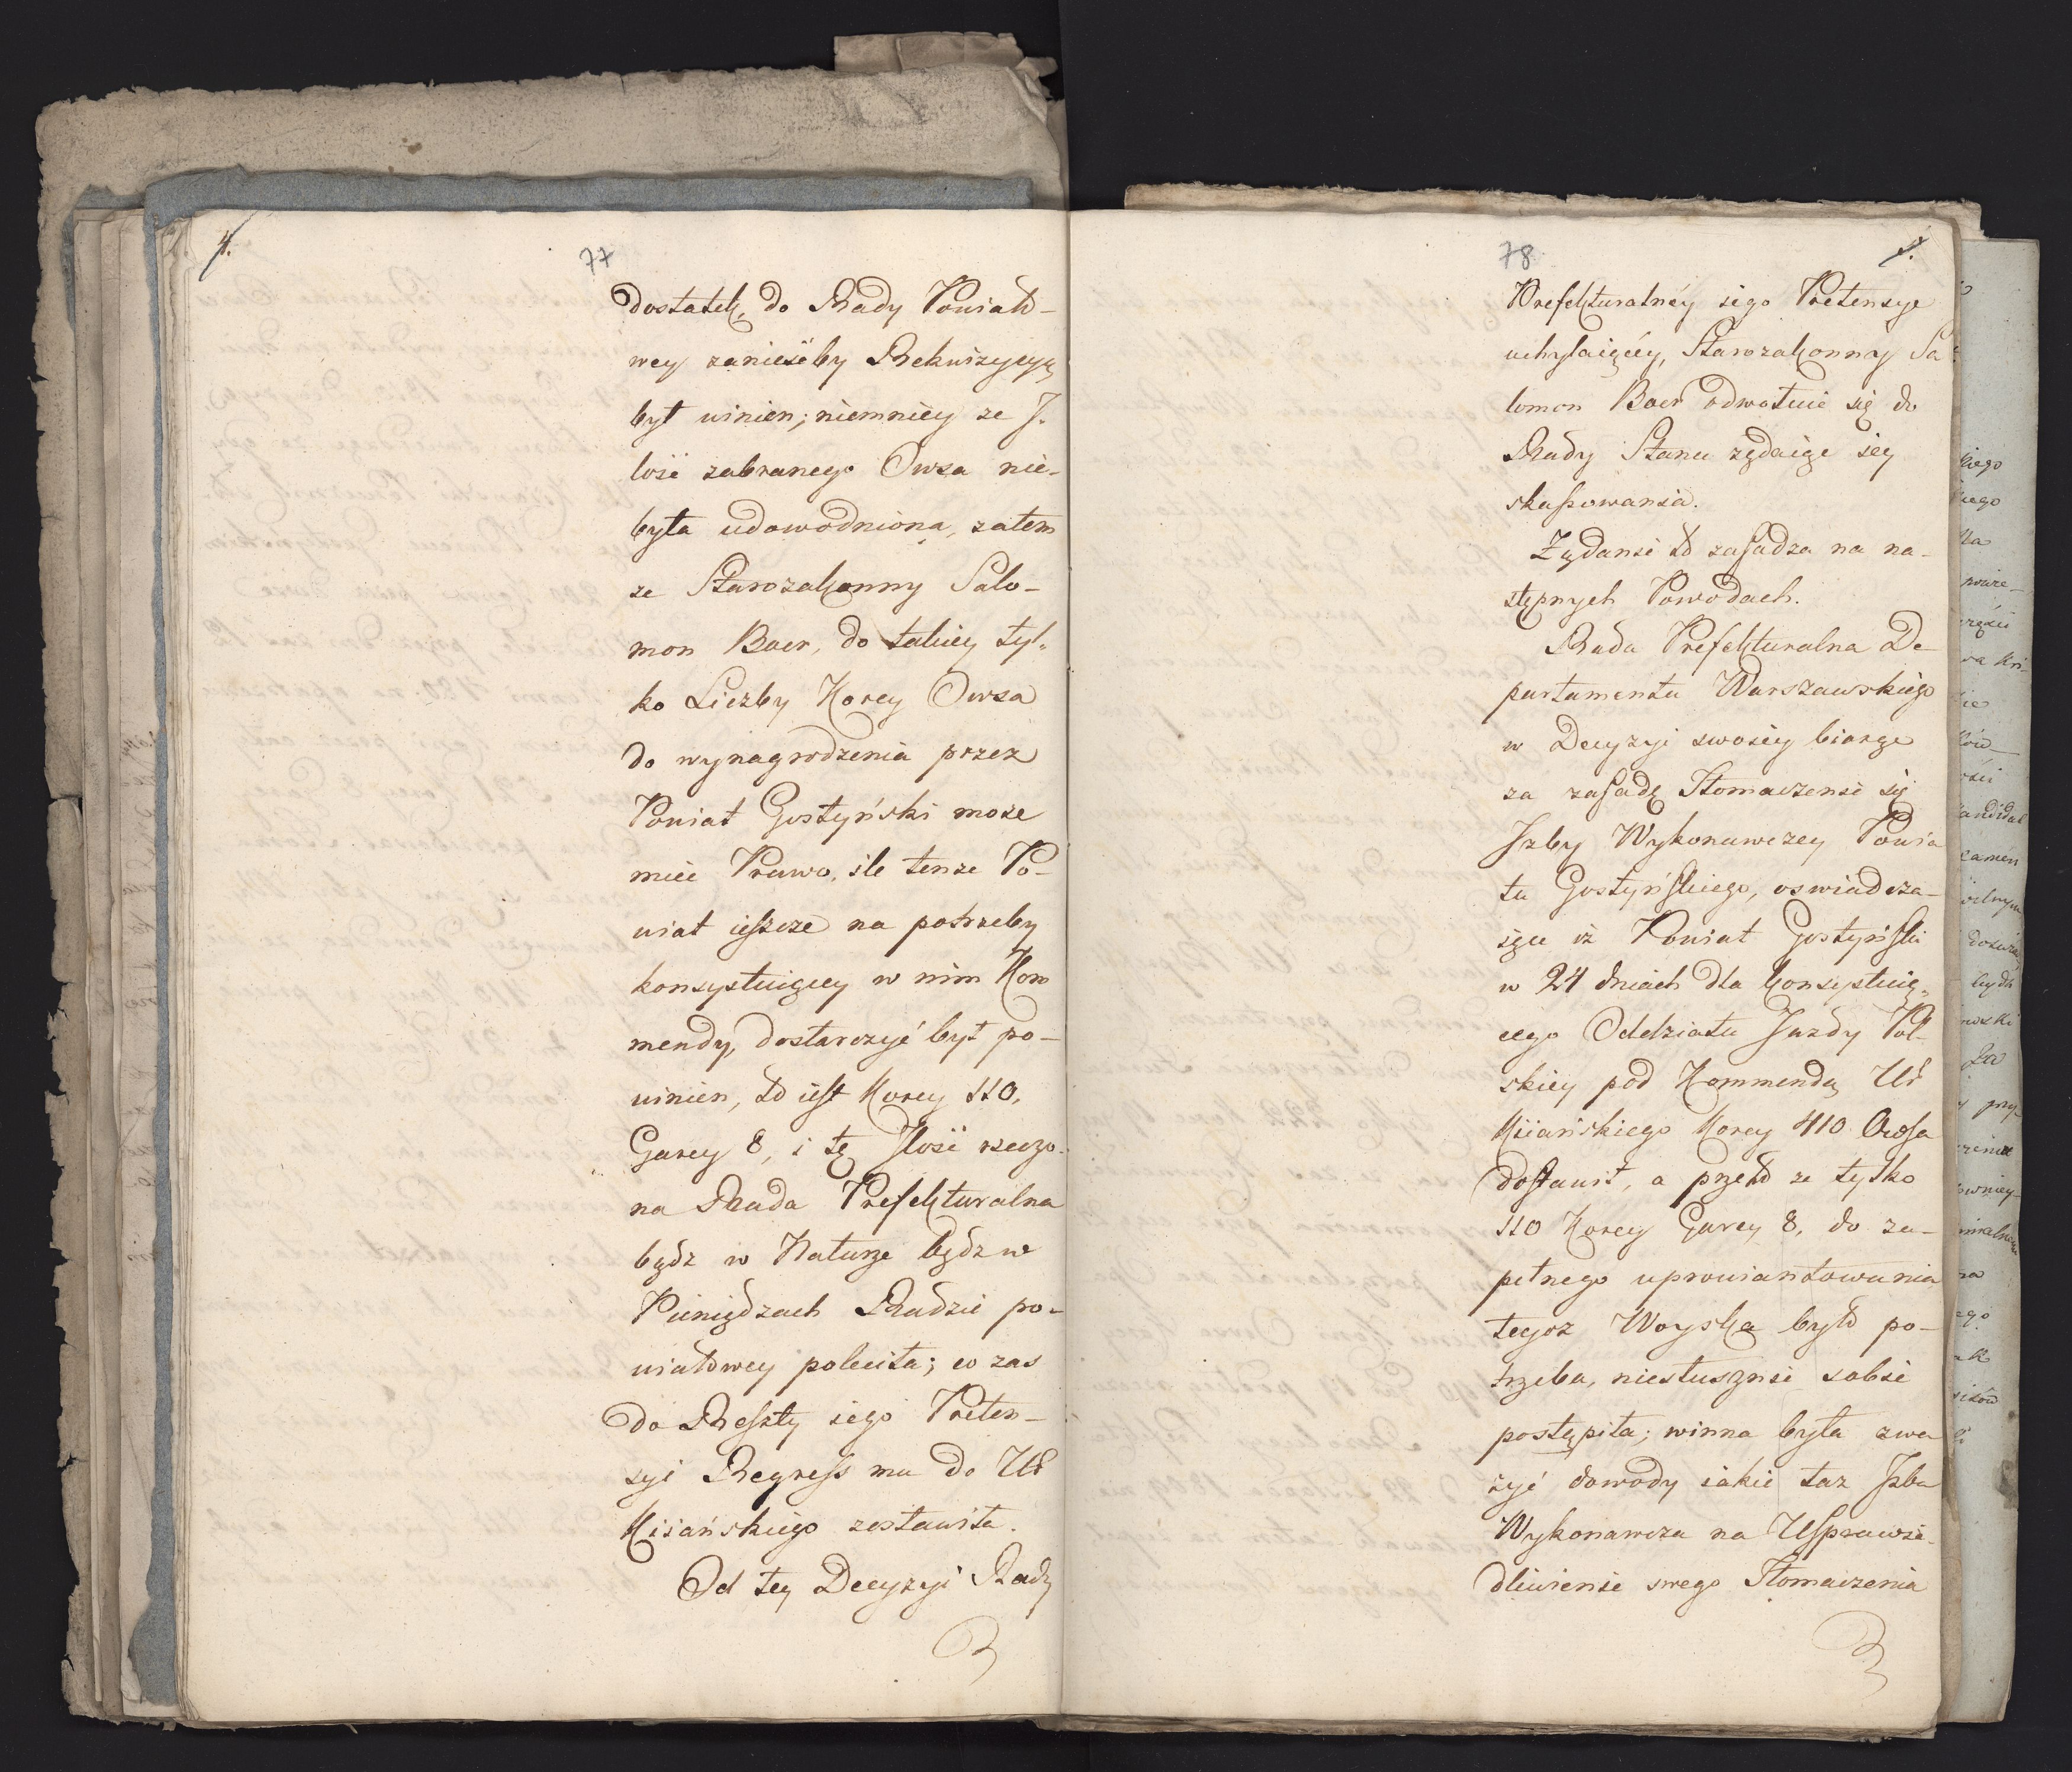 4.
77
dostatek, do Rady Powiato-
wey zanieśćby Rekwizycyą
był winien; niemniey ze J-
lość zabranego Owsa nie-
była udowodniona, zatem
ze Starozakonny Salo-
mon Baer, do takiey tyl-
ko Liczby Korcy Owsa
do wynagrodzenia przez
Powiat Gostyński może
mieć Prawo, ile tenże Po-
wiat ieszcze na potrzeby
konsystuiącey w nim Kom
mendy, dostarczyć był po-
winien, to iest Korcy 110,
Garcy 8, i tę Jlość rzeczo-
na Rada Prefekturalna
bądz w Naturze bądz w
Pieniądzach Radzie po-
wiatowey poleciła; co zas
do Reszty iego Preten-
syi Regress mu do Ur
Kiiańskiego zostawiła.
Od tey Decyzyi Rady
78
5.
Prefekturalnéy iego Pretensye
uchylaiącéy, Starozakonny Sa
lomon Baer odwołuie się do
Rady Stanu żądaiąc iey
skassowania.
Żądanie to zasadza na na-
stępnych Powodach.
Rada Prefekturalna De-
partamentu Warszawskiego
w Decyzyi swoiey biorąc
za zasadę Tłomaczenie się
Jzby Wykonawczey Powia
tu Gostyńskiego, oswiadcza-
iące iż Powiat Gostyński
w 24 dniach dla konsystuią-
cego Oddziału Jazdy Pol-
skiey pod Kommendą Ur
Kiiańskiego Korcy 410 Owsa
dostawił, a przeto ze tylko
110 Korcy Garcy 8, do zu-
pełnego uprowiantowania
tegoz Woyska było po-
trzeba, niesłusznie sobie
postąpiła; winna była zwa
żyć dowody iakie taz Jzba
Wykonawcza na Usprawie-
dliwienie swego Tłomaczenia